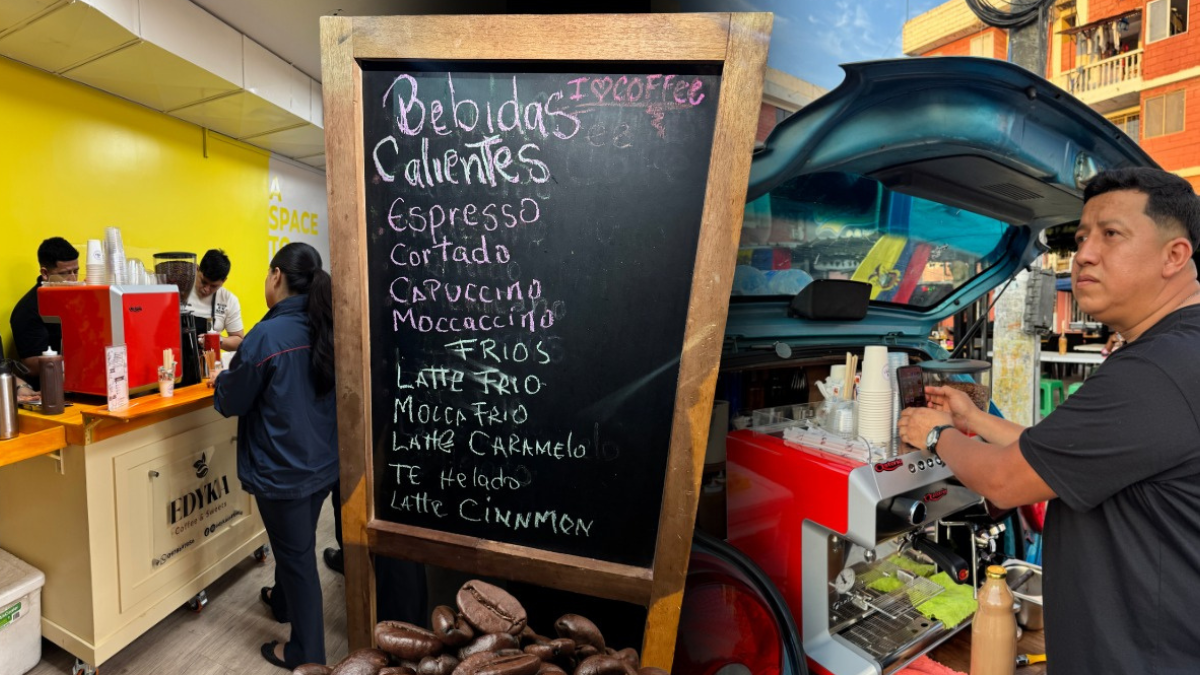 A
SPACE
TO
EDYKA
Coffee & Sweets
Bebidas I♡COFFee
Calientes
Espresso
Cortado
CAPUCCINO
Moccaccino
FRIOS
LATTE FRIO
MOCCA FRIO
LATTE CARAMELO
TE Helado
LATTE CINNMON